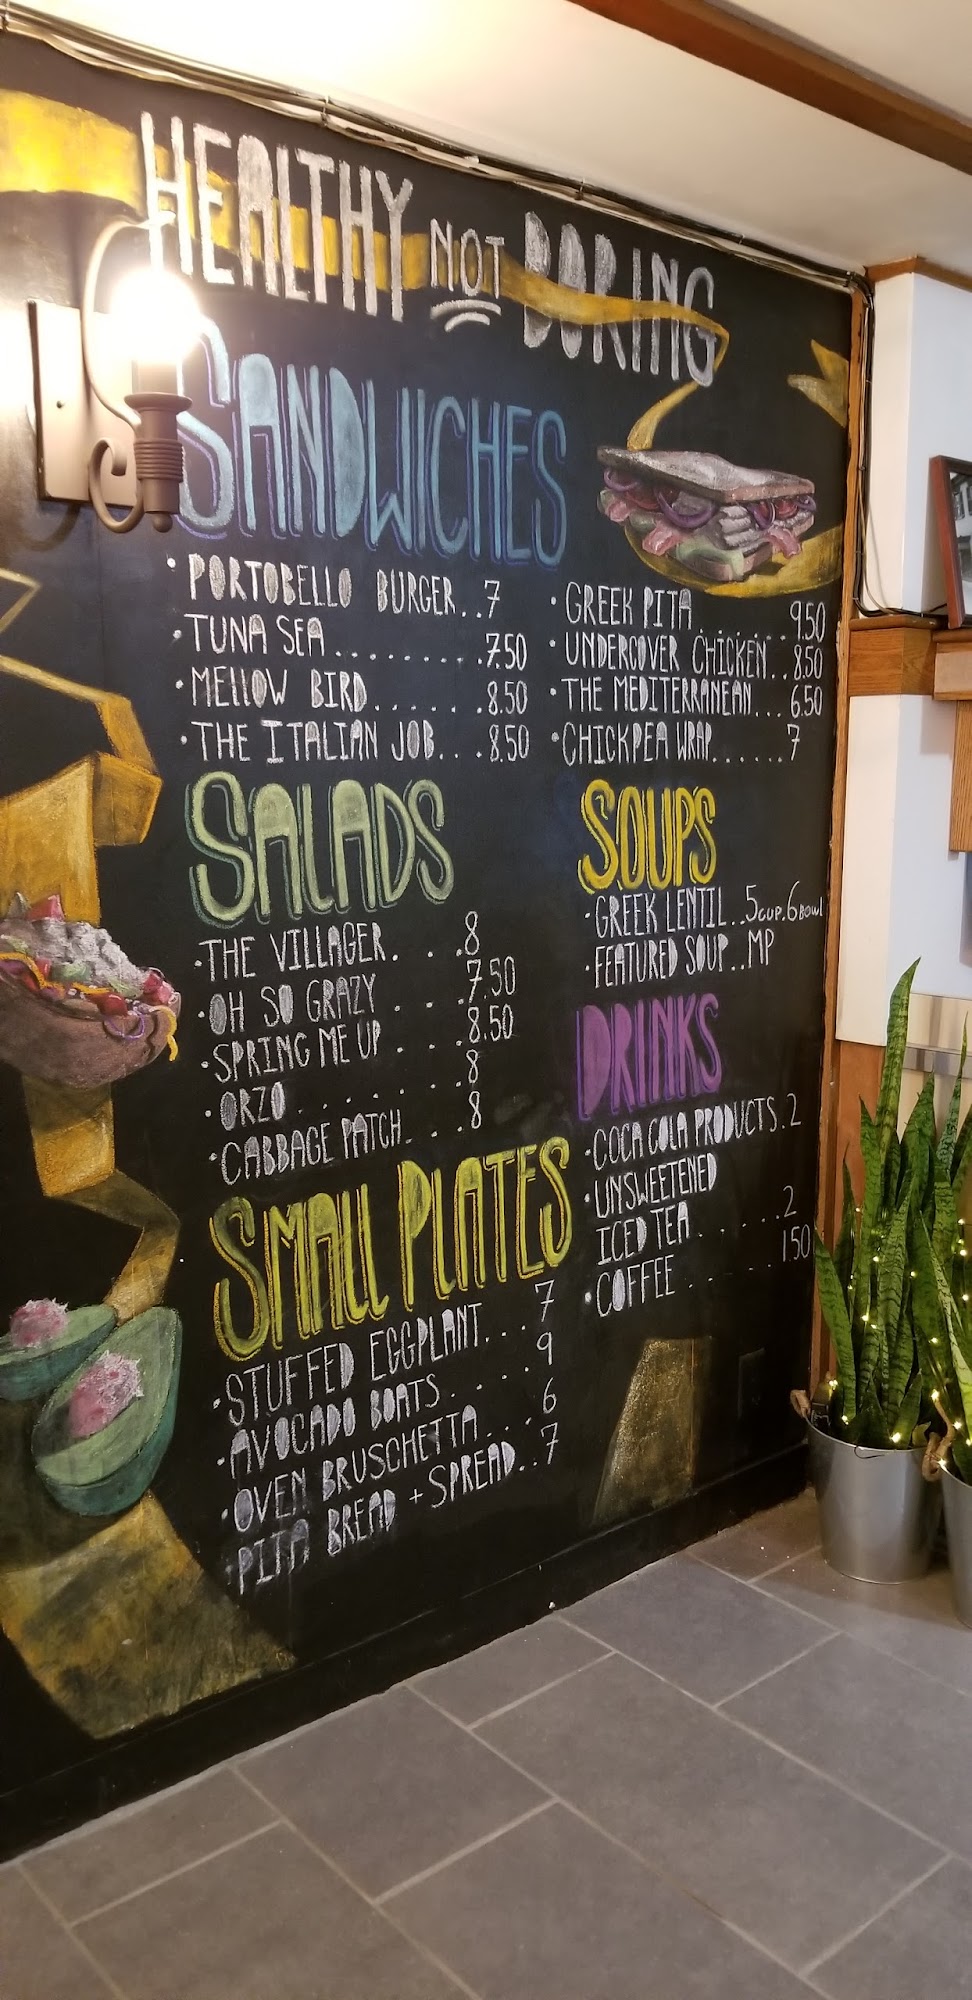 HEALTHY NOT BORING
SANDWICHES
• PORTOBELLO BURGER..7
• TUNA SEA.........7.50
• MELLOW BIRD......8.50
• THE ITALIAN JOB...8.50
• GREEK PITA.......9.50
• UNDERCOVER CHICKEN..8.50
• THE MEDITERRANEAN...6.50
• CHICKPEA WRAP......7
SALADS
• THE VILLAGER. . .8
• OH SO GRAZY . . .7.50
• SPRING ME UP . . .8.50
• ORZO . . . . . .8
• CABBAGE PATCH. . .8
SOUPS
• GREEK LENTIL..5CUP.6BOWL
• FEATURED SOUP..MP
DRINKS
• COCA COLA PRODUCTS.2
• UNSWEETENED
ICED TEA . . . . .2
• COFFEE . . . . . 1.50
SMALL PLATES
• STUFFED EGGPLANT...7
• AVOCADO BOATS. . . .9
• OVEN BRUSCHETTA...6
• PITA BREAD + SPREAD..7